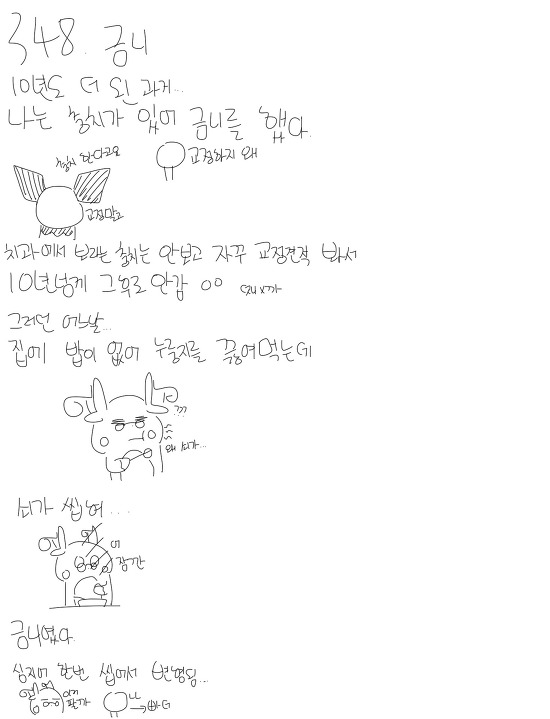 348. 금니
10년도 더 된 과거...
나는 충치가 있어 금니를 했다.
충치 한다고요
교정하지 왜
교정말고
치과에서 보라는 충치는 안보고 자꾸 교정견적 봐서
10년넘게 그후로 안감 ㅇㅇ
그러던 어느날...
집에 밥이 없어 누룽지를 끓여먹는데
???
왜 쇠가...
쇠가 씹혀....
어
잠깐
금니였다.
심지어 한번 씹어서 변형됨...
이거
팔까
ㄴㄴ
→빠더